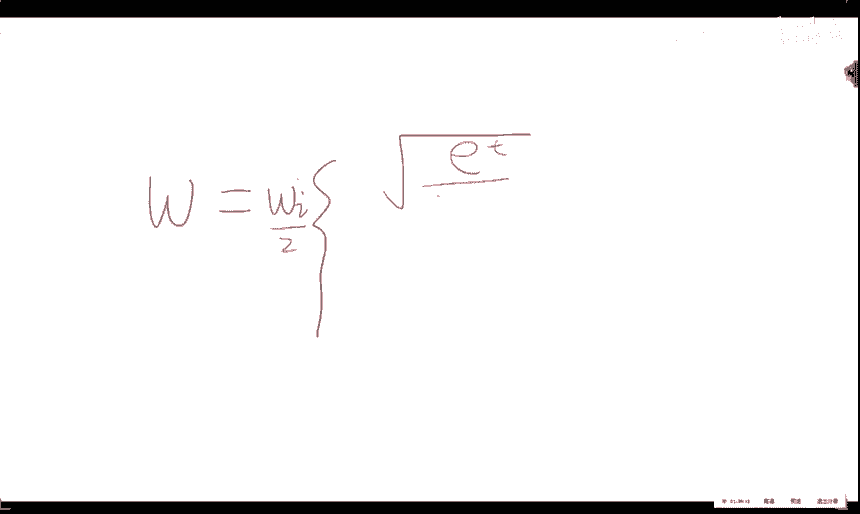 W = Wi/2 { √(e^t/